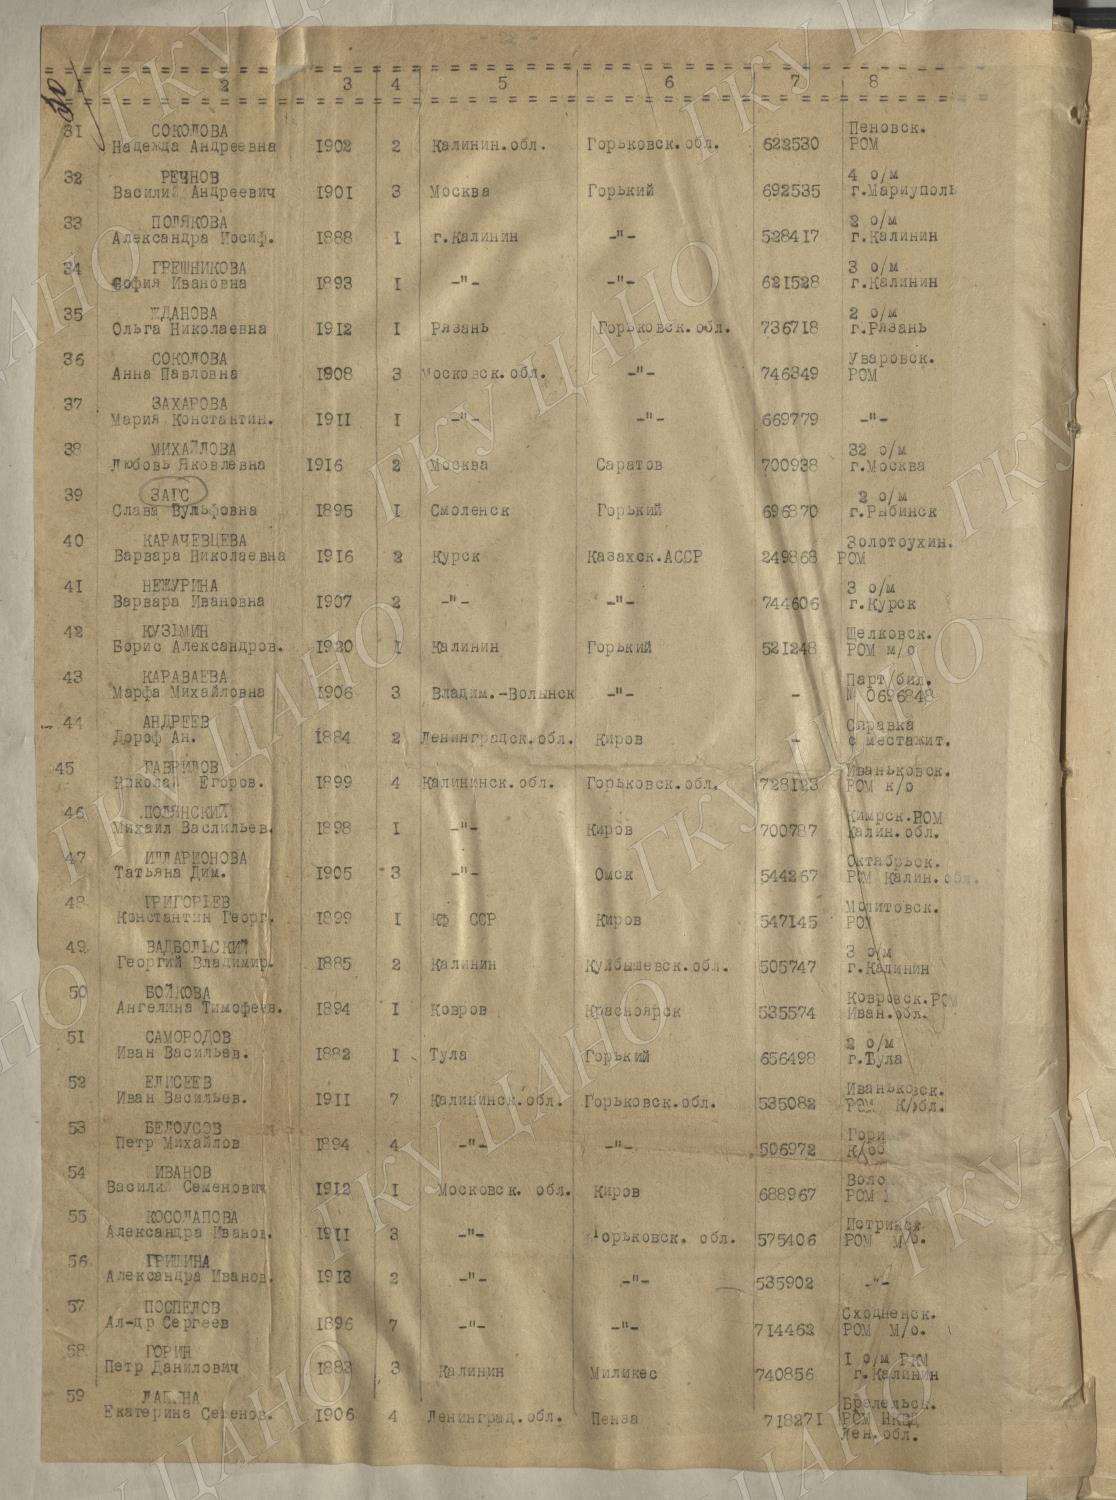 - 22 -
1 2 3 4 5 6 7 8
31 СОКОЛОВА Пеновск.
Надежда Андреевна 1902 2 Калинин.обл. Горьковск.обл. 622530 РОМ
32 РЕЧНОВ 4 о/м
Василий Андреевич 1901 3 Москва Горький 692535 г.Мариуполь
33 ПОЛЯКОВА 2 о/м
Александра Иосиф. 1888 1 г.Калинин -"- 528417 г.Калинин
34 ГРЕШНИКОВА 3 о/м
София Ивановна 1893 1 -"- -"- 621528 г.Калинин
35 ЖДАНОВА 2 о/м
Ольга Николаевна 1912 1 Рязань Горьковск.обл. 736718 г.Рязань
36 СОКОЛОВА Уваровск.
Анна Павловна 1908 3 Московск.обл. -"- 746349 РОМ
37 ЗАХАРОВА
Мария Константин. 1911 1 -"- -"- 669779 -"-
38 МИХАЙЛОВА 32 о/м
Любовь Яковлевна 1916 2 Москва Саратов 700938 г.Москва
39 ЗАГС 2 о/м
Слава Вульфовна 1895 1 Смоленск Горький 696870 г.Рыбинск
40 КАРАЧЕВЦЕВА Золотоухин.
Варвара Николаевна 1916 2 Курск Казахск.АССР 249868 РОМ
41 НЕЖУРИНА 3 о/м
Варвара Ивановна 1907 2 -"- -"- 744606 г.Курск
42 КУЗЬМИН Щелковск.
Борис Александров. 1920 1 Калинин Горький 521248 РОМ м/о
43 КАРАВАЕВА Парт бил.
Марфа Михайловна 1906 3 Владим.-Волынск -"- - № 0696848
44 АНДРЕЕВ Справка
Дороф Ан. 1884 2 Ленинградск.обл. Киров - с местажит.
45 ГАВРИЛОВ Иваньковск.
Николай Егоров. 1899 4 Калининск.обл. Горьковск.обл. 728123 РОМ к/о
46 ПОЛЯНСКИЙ Кимрск.РОМ
Михаил Васлильев. 1898 1 -"- Киров 700787 Калин.обл.
47 ИЛЛАРИОНОВА Октябрьск.
Татьяна Дим. 1905 3 -"- Омск 544267 РОМ Калин.обл.
48 ГРИГОРЬЕВ Молитовск.
Константин Георг. 1899 1 КФ ССР Киров 547145 РОМ
49 ВАДБОЛЬСКИЙ 3 о/м
Георгий Владимир. 1885 2 Калинин Куйбышевск.обл. 505747 г.Калинин
50 БОЙКОВА Ковровск.РОМ
Ангелина Тимофеев. 1894 1 Ковров Красноярск 535574 Иван.обл.
51 САМОРОДОВ 2 о/м
Иван Васильев. 1882 1 Тула Горький 656498 г.Тула
52 ЕЛИСЕЕВ Иваньковск.
Иван Васильев. 1911 7 Калининск.обл. Горьковск.обл. 535082 РОМ К/обл.
53 БЕЛОУСОВ
Петр Михайлов 1894 4 -"- -"- 506972
54 ИВАНОВ
Василий Семенович 1912 1 Московск. обл. Киров 688967 РОМ
55 КОСОЛАПОВА Истринск
Александра Иванов. 1911 3 -"- Горьковск. обл. 575406 РОМ М/о.
56 ГРИШИНА
Александра Иванов. 1913 2 -"- -"- 535902 -"-
57 ПОСПЕЛОВ Сходненск.
Ал-др Сергеев 1896 7 -"- -"- 714462 РОМ М/о.
58 ГОРИН 1 о/м РКМ
Петр Данилович 1883 3 Калинин Миликес 740856 г.Калинин
59 ЛАПИНА
Екатерина Семенов. 1906 4 Ленинград.обл. Пенза 718271 РОМ НКВД
Лен.обл.
ГКУ ЦАНО